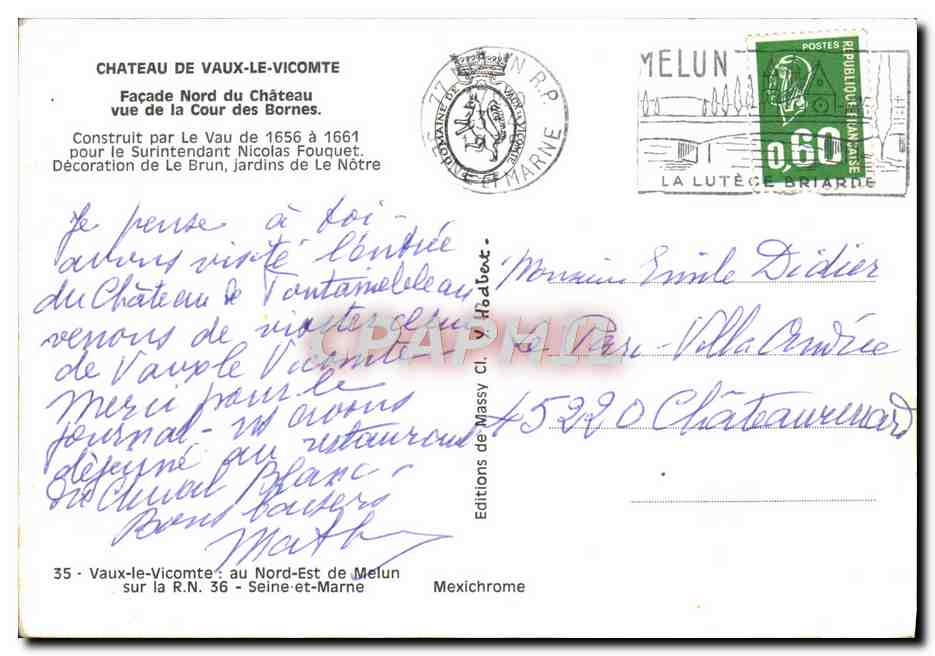 CHATEAU DE VAUX-LE-VICOMTE
Façade Nord du Château
vue de la Cour des Bornes.
Construit par Le Vau de 1656 à 1661
pour le Surintendant Nicolas Fouquet.
Décoration de Le Brun, jardins de Le Nôtre
77 N R.P.
DOMAINE DE VAUX LE VICOMTE
ET MARNE
MELUN
LA LUTÈCE BRIARDE
POSTES
REPUBLIQUE FRANÇAISE
0,60
Je pense à toi -
avons visité l'entrée
du Château de Fontainebleau
venons de visiter celui
de Vaux le Vicomte
Merci pour le
journal - ns avons
déjeuné au restaurant
du Cheval Blanc
Bons baisers
Math
Monsieur Emile Didier
Le Parc - Villa Andrée
45220 Châteaurenard
Editions de Massy Cl. Y. Hodbert.
CPAPHIL
35 - Vaux-le-Vicomte : au Nord-Est de Melun
sur la R.N. 36 - Seine-et-Marne
Mexichrome